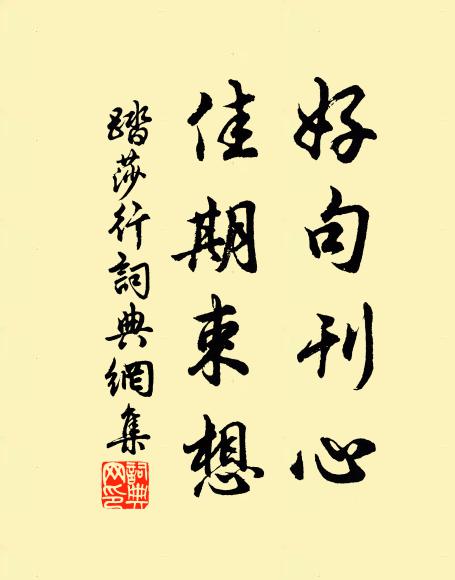 好句刊心
佳期束想
踏莎行詞典網集
詞典網印